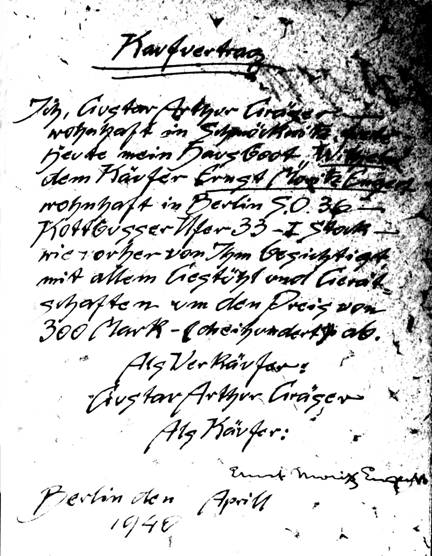 Kaufvertrag
Ich, Gustav Arthur Gräser
wohnhaft in Schmöckwitz
Heute mein Hausboot
dem Käufer Ernst Moritz Engert
wohnhaft in Berlin S.O. 36 –
Kottbusser Ufer 33 – I Stock –
wie vorher von Ihm besichtigt
mit allem Gestühl und Gerät-
schaften um den Preis von
300 Mark – (dreihundert) ab.
Als Verkäufer:
Gustav Arthur Gräser
Als Käufer:
Ernst Moritz Engert
Berlin den Aprill
1940